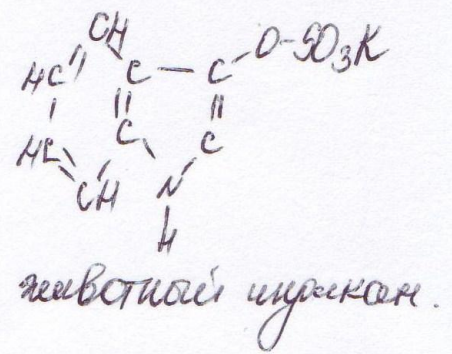 CH
C — C O-SO₃K
HC
C C
HC
CH N
H
животный индикан.